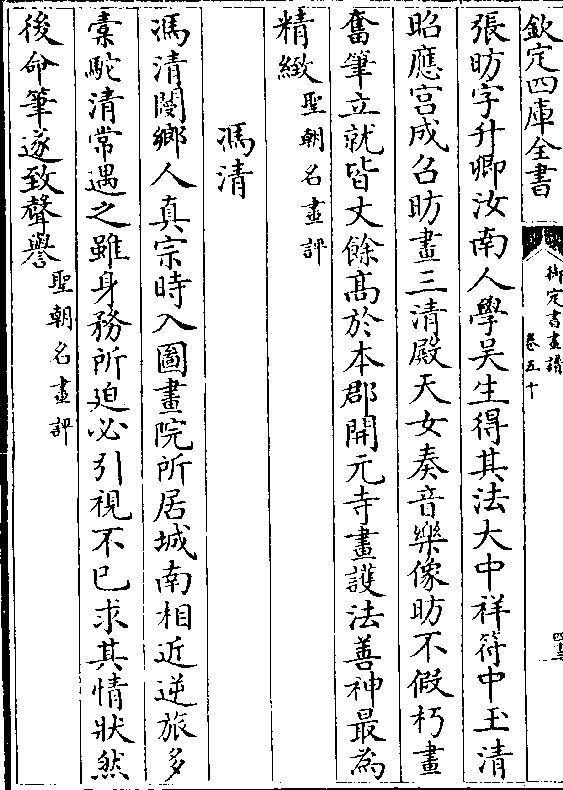 欽定四庫全書
御定書畫譜
卷五十
張昉字升卿汝南人學吴生得其法大中祥符中玉清
昭應宫成召昉畫三清殿天女奏音樂像昉不假朽畫
奮筆立就皆丈餘髙於本郡開元寺畫護法善神最為
精緻聖朝名畫評
馮清
馮清閿鄉人真宗時入圖畫院所居城南相近逆旅多
槖駝清常遇之雖身務所迫必引視不已求其情狀然
後命筆遂致聲譽聖朝名畫評